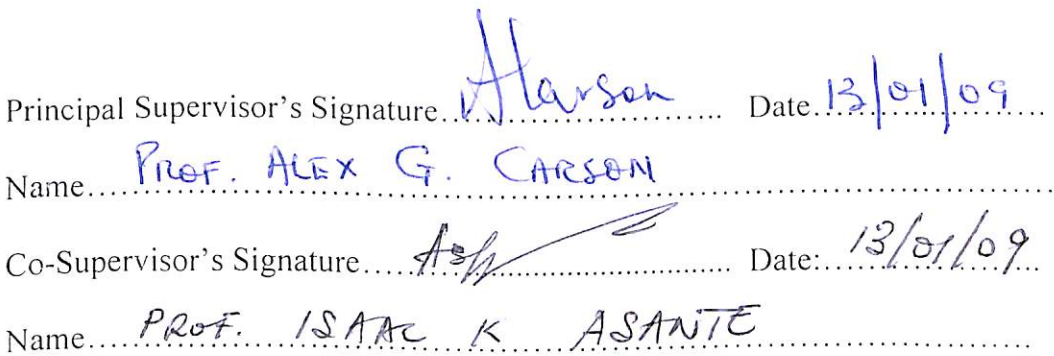 Principal Supervisor's Signature........................ Date 13/01/09
Name PROF. ALEX G. CARSON
Co-Supervisor's Signature........................ Date: 13/01/09
Name PROF. ISAAC K ASANTE